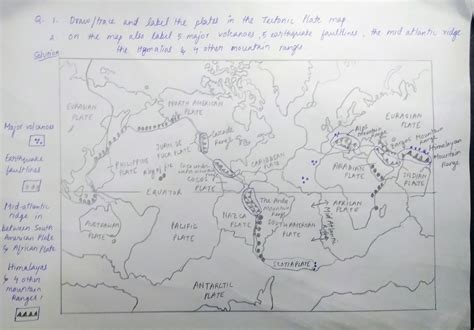 Q. 1. Draw/trace and label the plates in the Tectonic Plate map
2. On the map also label 5 major volcanoes, 5 earthquake faultlines, the mid atlantic ridge
the Hymalias & 4 other mountain ranges.
Solution
Major volcanoes
Earthquake
faultlines
Mid-atlantic
ridge in
between South
American Plate
& African Plate
Himalayas
& 4 other
mountain
Ranges:
EURASIAN
PLATE
NORTH AMERICAN
PLATE
JUAN DE
FUCA PLATE
Cascade
Range
PHILIPPINE
PLATE
COCOS
PLATE
CARIBBEAN
PLATE
EQUATOR
PACIFIC
PLATE
AUSTRALIAN
PLATE
NAZCA
PLATE
The Andes
Mountain
Range
SOUTH AMERICAN
PLATE
Mid Atlantic
AFRICAN
PLATE
ARABIAN
PLATE
INDIAN
PLATE
EURASIAN
PLATE
Alps
Mountain
Range
Zagros Mountain
Range
Himalayan
Mountain
Range
SCOTIA PLATE
ANTARCTIC
PLATE